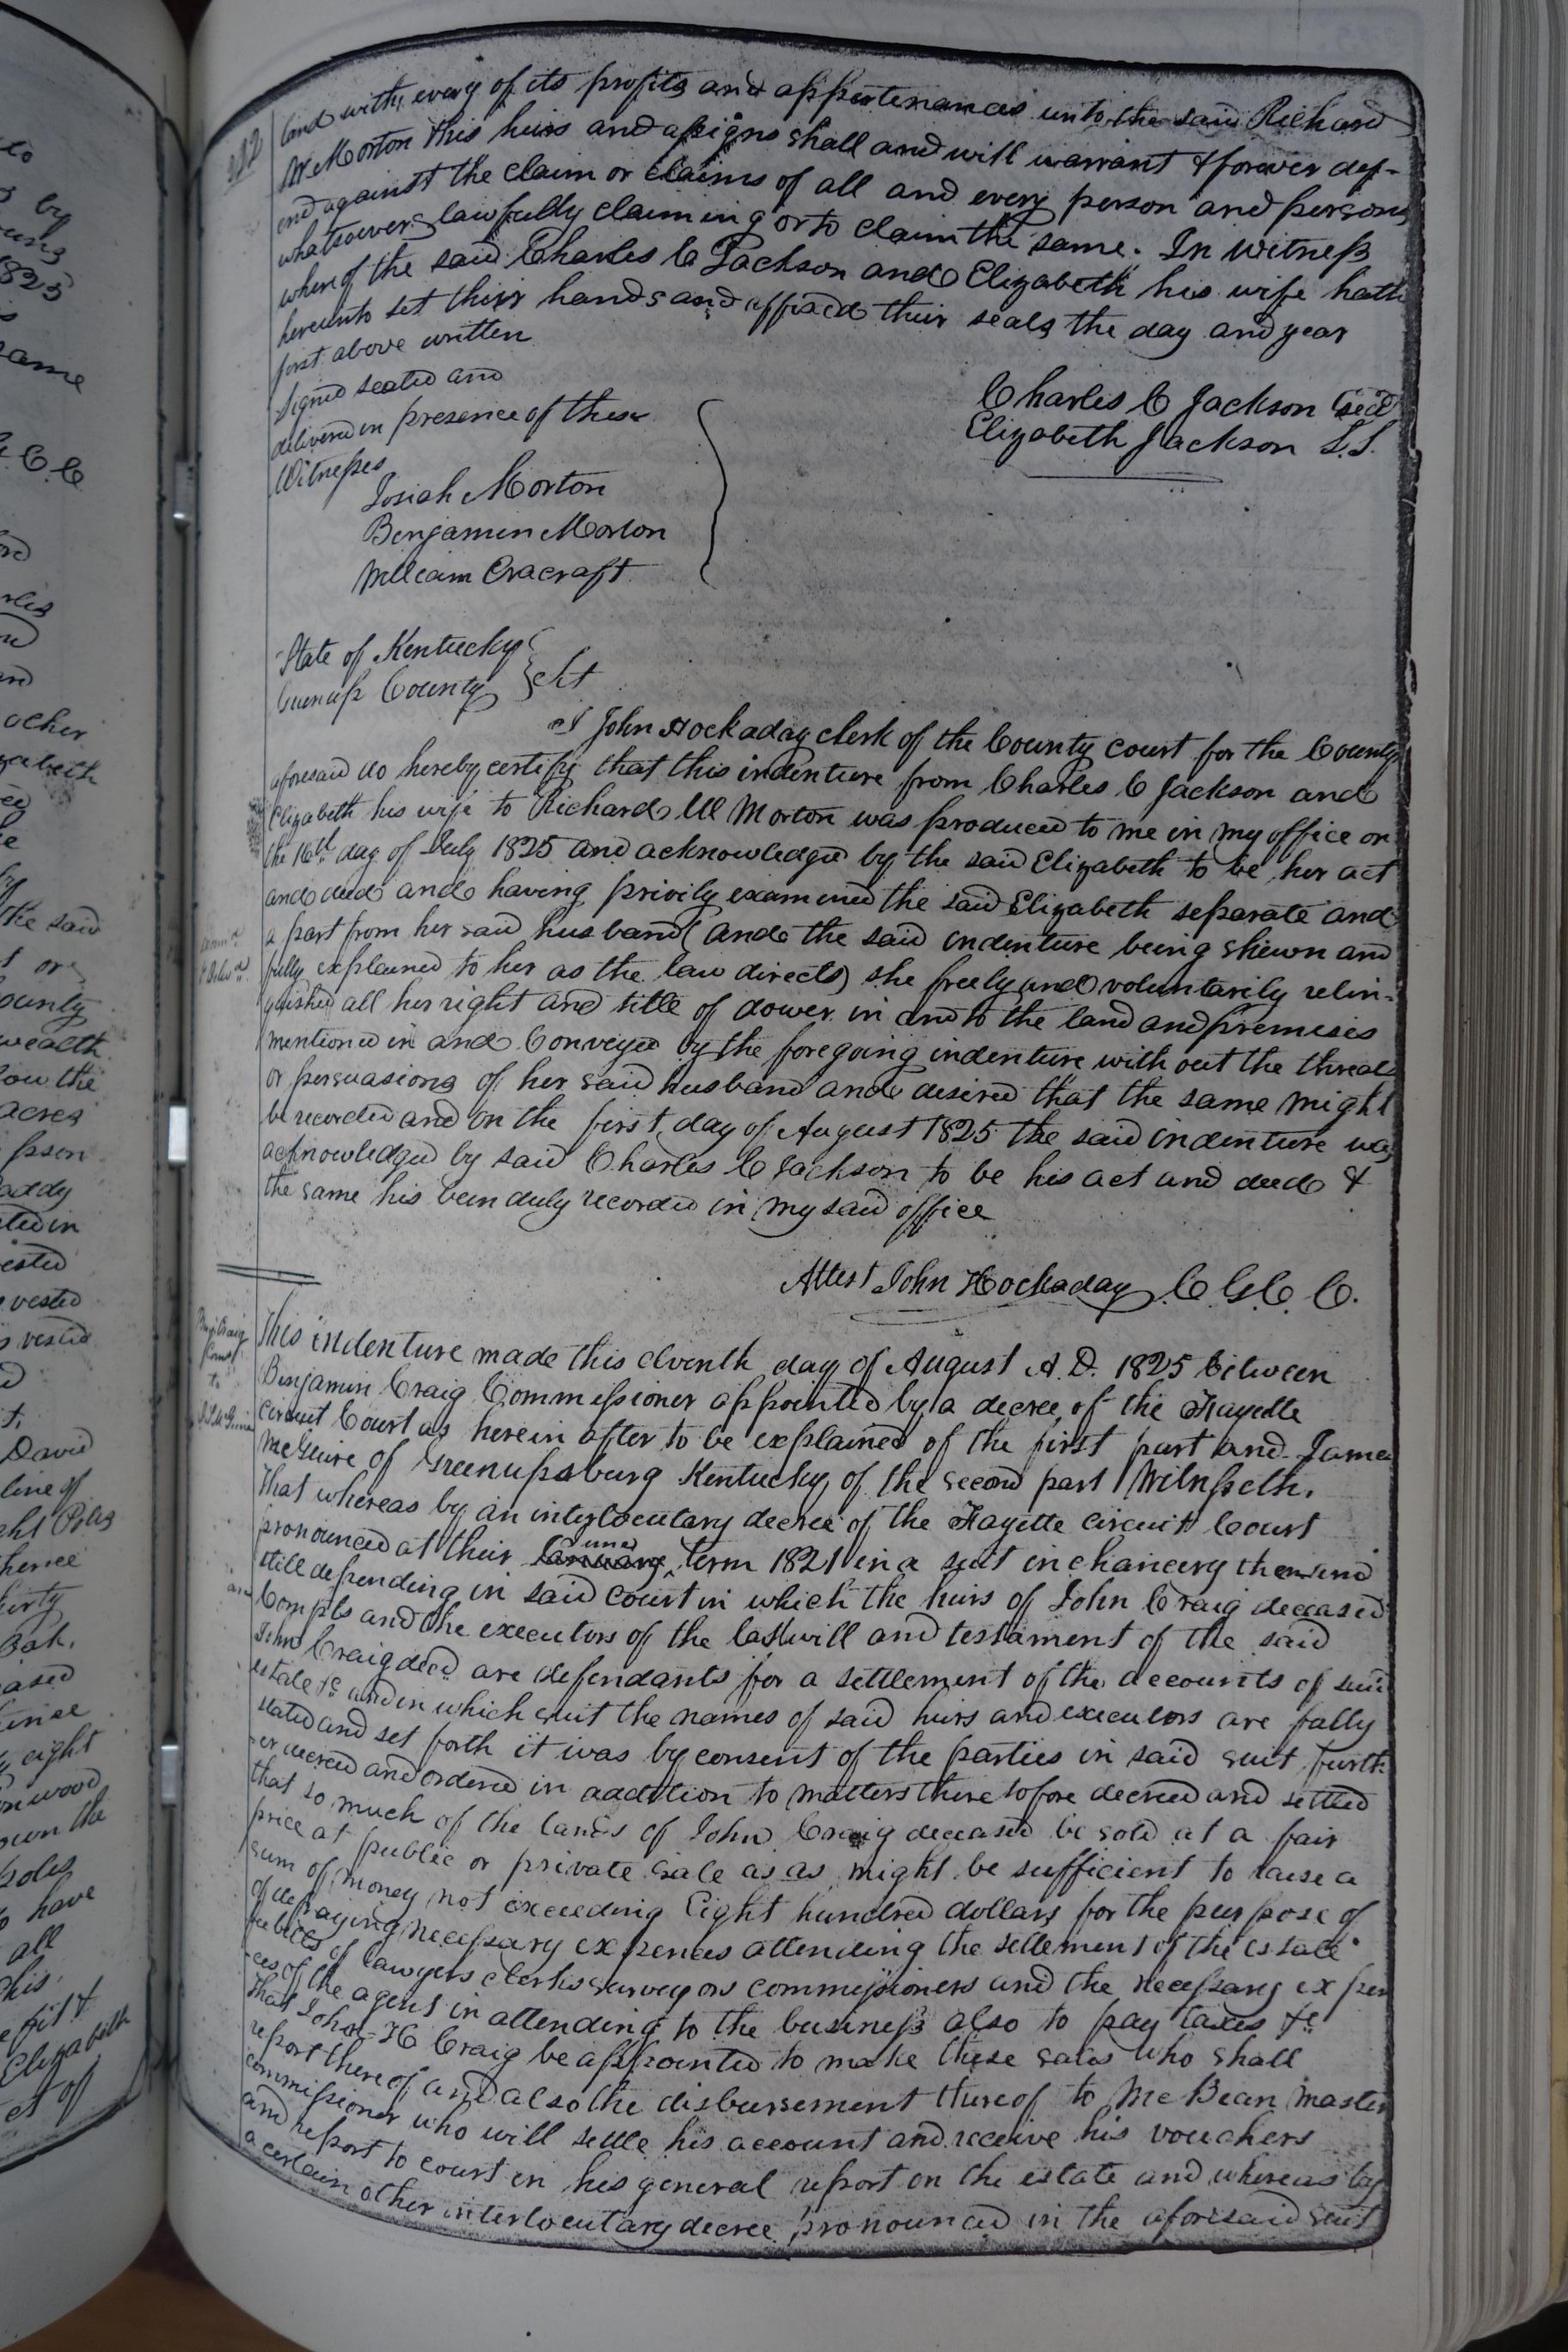 land with every of its profits and appertenances unto the said Richard
M Morton this heirs and assigns shall and will warrant & forever def-
end against the claim or claims of all and every person and persons
whatsoever lawfully claiming or to claim the same. In witness
whereof the said Charles C Jackson and Elizabeth his wife hath
hereunto set their hands and affixed their seals the day and year
first above written
Signed sealed and
delivered in presence of these
Witnesses
Charles C Jackson
Elizabeth Jackson L.S.
Josiah Morton
Benjamin Morton
William Cracraft
State of Kentucky
Greenup County
I John Hockaday clerk of the County court for the County
aforesaid do hereby certify that this indenture from Charles C Jackson and
Elizabeth his wife to Richard M Morton was produced to me in my office on
the 16th day of July 1825 and acknowledged by the said Elizabeth to be her act
and deed and having privily examined the said Elizabeth separate and
a part from her said husband (and the said indenture being shewn and
fully explained to her as the law directs) she freely and voluntarily relin-
quished all her right and title of dower in and to the land and premises
mentioned in and Conveyed by the foregoing indenture with out the threats
or persuasions of her said husband and desired that the same might
be recorded and on the first day of August 1825 the said indenture was
acknowledged by said Charles C Jackson to be his act and deed &
the same his been duly recorded in my said office
Attest John Hockaday C.G.C.C.
This indenture made this elventh day of August A.D. 1825 between
Benjamin Craig Commissioner appointed by a decree of the Fayette
circuit Court as herein after to be explained of the first part and James
McGuire of Greenupsburg Kentucky of the second part Witnesseth.
That whereas by an interlocutary decree of the Fayette circuit Court
pronounced at their June term 1821 in a suit in chancery then and
still depending in said court in which the heirs of John Craig deceased
Compts and the executors of the last will and testament of the said
John Craig decd are defendants for a settlement of the accounts of said
estate &c and in which suit the names of said heirs and executors are fully
stated and set forth it was by consent of the parties in said suit furth-
er decreed and ordered in addition to matters there tofore decreed and settled
that so much of the lands of John Craig deceased be sold at a fair
price at public or private sale as as might be sufficient to raise a
sum of money not exceeding Eight hundred dollars for the purpose of
of defraying necessary expences attending the settlement of the estate
feebills of lawyers clerks surveyors commissioners and the necessary expen
ces of the agent in attending to the business also to pay taxes &c
That John H Craig be appointed to make these sales who shall
report thereof and also the disbursement thereof to Mc Bean master
commissioner who will settle his account and receive his vouchers
and report to court in his general report on the estate and whereas by
a certain other interlocutary decree pronounced in the aforesaid suit